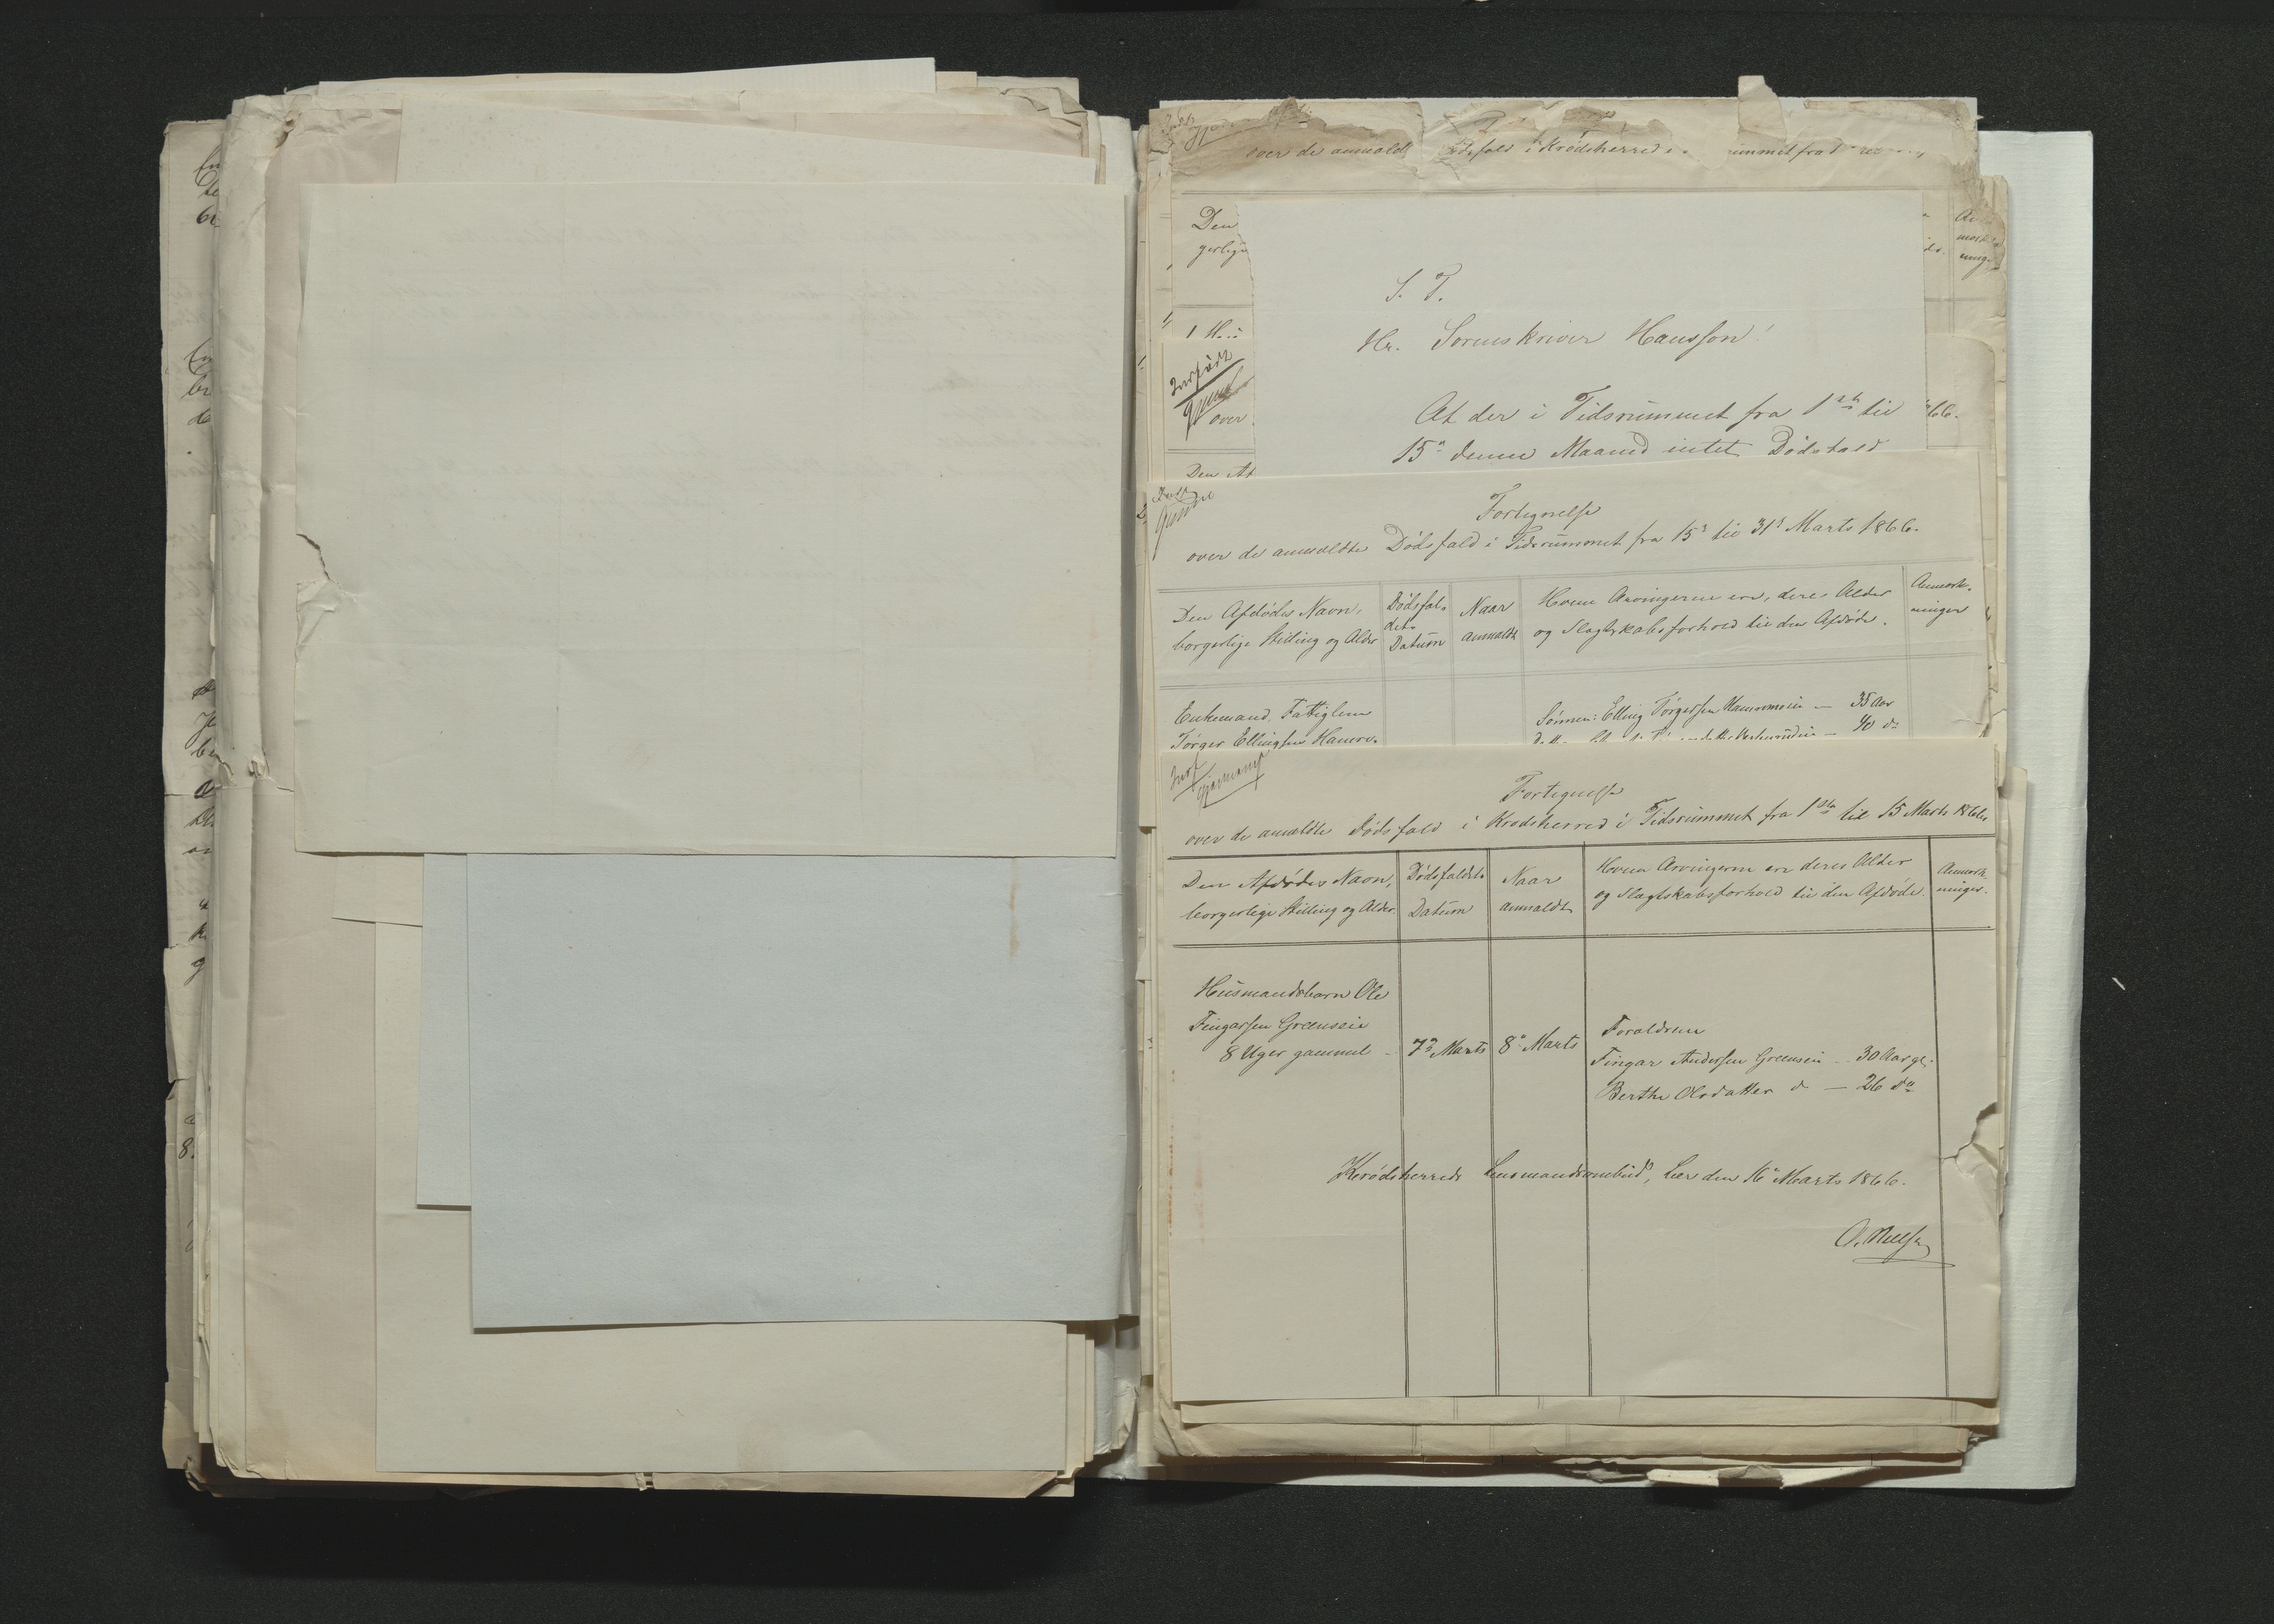 over de anmeldt Dødsfald i Krødsherred i
Den
gerlige
1
Indført
over
66.
Den Af
S. T.
Hr. Sorenskriver Hansson!
At der i Tidsrummet fra 1ste til
15de denne Maaned intet Dødsfald
Fortegnelse
over de anmeldte Dødsfald i Tidsrummet fra 15de til 31te Marts 1866.
Den Afdødes Navn,
borgerlige Stilling og Alder
Dødsfal-
dets
Datum
Naar
anmeldt
Hvem Arvingerne ere, deres Alder
og Slægtskabsforhold til den Afdøde.
Anmærk-
ninger
Enkemand, Fattiglem
Tørger Ellingsen Hamre-
Sønnen: Elling Tørgersen Hamremoen — 35 Aar
40 do
Indf
Fortegnelse
over de anmeldte Dødsfald i Krødsherred i Tidsrummet fra 1ste til 15 Marts 1866
Den Afdødes Navn,
borgerlige Stilling og Alder
Dødsfaldets
Datum
Naar
anmeldt
Hvem Arvingerne ere deres Alder
og Slægtskabsforhold til den Afdøde.
Anmærk-
ninger.
Huusmandsbarn Ole
Fingarsen Greenseie
8 Uger gammel –
7de Marts
8de Marts
Forældrene
Fingar Andersen Greenseie — 30 Aar gl.
Berthe Olsdatter do — 26 do
Krødsherreds Lensmandsombud, Leer den 16de Marts 1866.
O. Nielsen